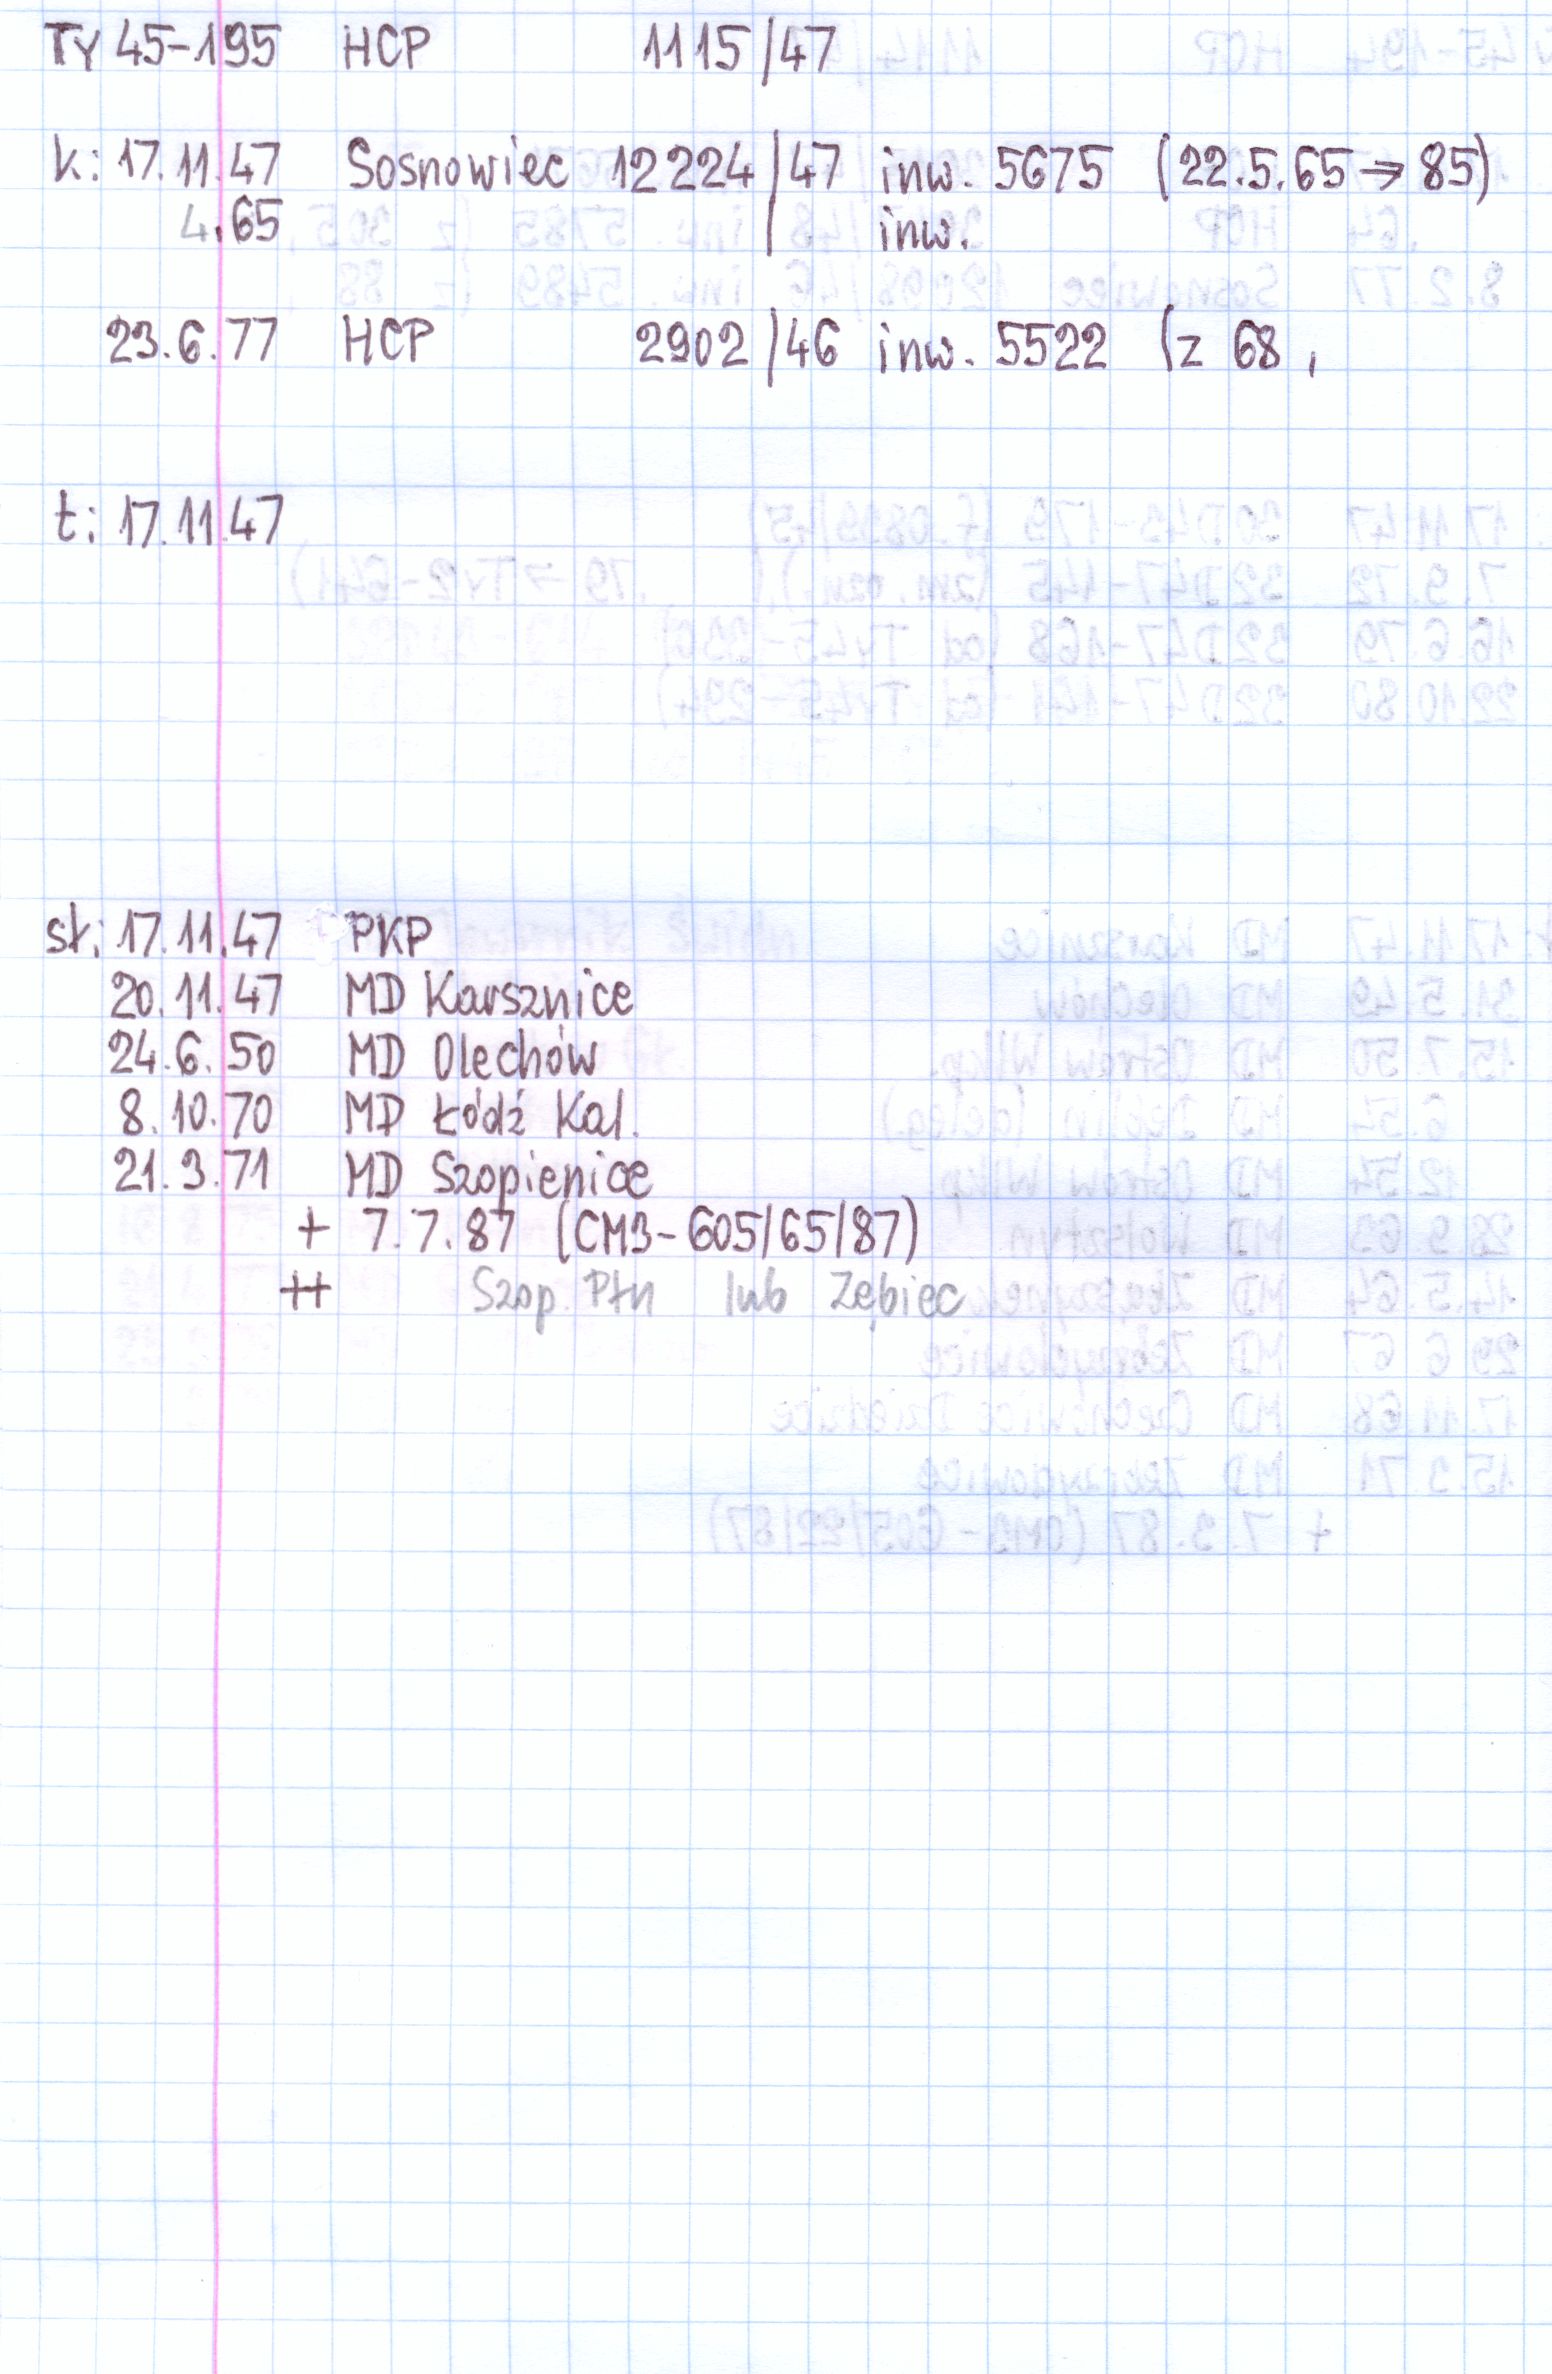 Ty 45-195 HCP 1115/47
k: 17.11.47 Sosnowiec 12224/47 inw. 5675 (22.5.65 → 85)
4.65 / inw.
23.6.77 HCP 2902/46 inw. 5522 (z 68,
t: 17.11.47
st: 17.11.47 PKP
20.11.47 MD Karsznice
24.6.50 MD Olechów
8.10.70 MD Łódź Kal.
21.3.71 MD Szopienice
+ 7.7.87 (CM3-605/65/87)
++ Szop. Płn lub Zębiec